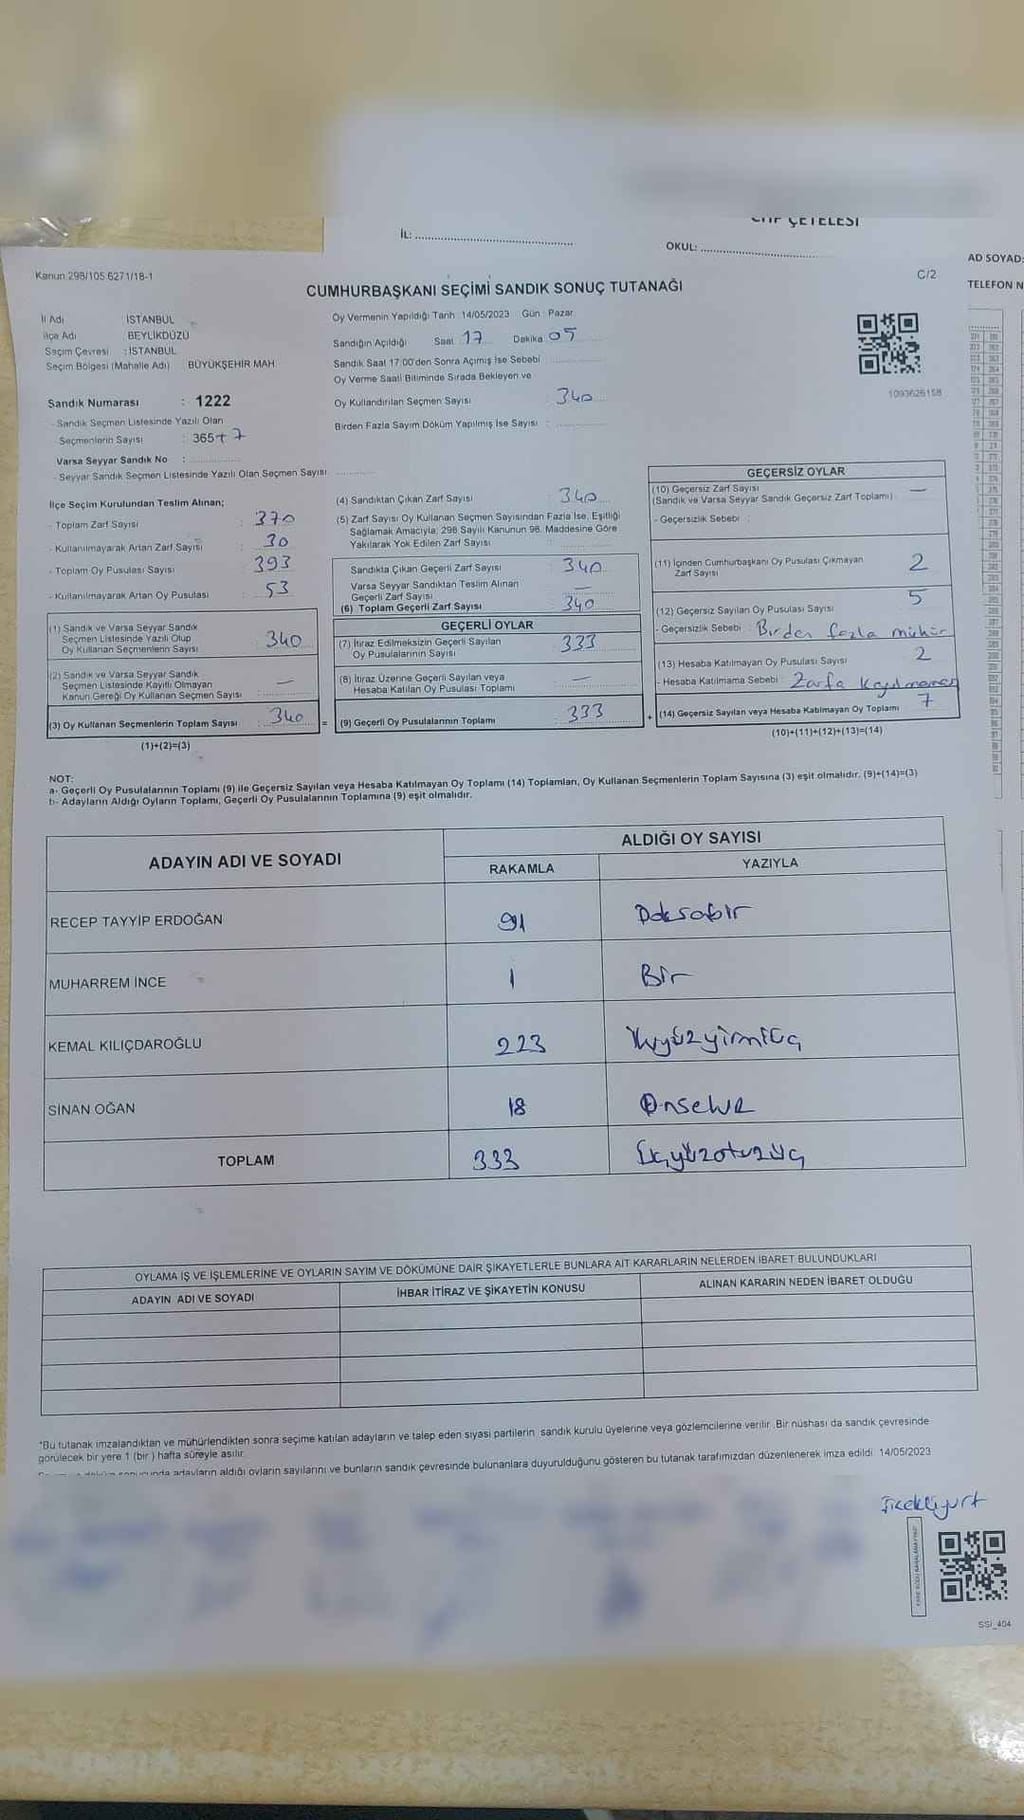 CHP ÇETELESİ
İL:
OKUL:
AD SOYAD:
TELEFON N
Kanun 298/105.6271/18-1
C/2
CUMHURBAŞKANI SEÇİMİ SANDIK SONUÇ TUTANAĞI
İl Adı İSTANBUL
İlçe Adı BEYLİKDÜZÜ
Seçim Çevresi : İSTANBUL
Seçim Bölgesi (Mahalle Adı) BÜYÜKŞEHİR MAH
Sandık Numarası : 1222
- Sandık Seçmen Listesinde Yazılı Olan
Seçmenlerin Sayısı : 365+7
Varsa Seyyar Sandık No :
- Seyyar Sandık Seçmen Listesinde Yazılı Olan Seçmen Sayısı
Oy Vermenin Yapıldığı Tarih 14/05/2023 Gün : Pazar
Sandığın Açıldığı Saat 17 Dakika 05
Sandık Saat 17:00'den Sonra Açımış İse Sebebi
Oy Verme Saati Bitiminde Sırada Bekleyen ve
Oy Kullandırılan Seçmen Sayısı 340
Birden Fazla Sayım Döküm Yapılmış İse Sayısı :
1093626158
İlçe Seçim Kurulundan Teslim Alınan;
- Toplam Zarf Sayısı : 370
- Kullanılmayarak Artan Zarf Sayısı : 30
- Toplam Oy Pusulası Sayısı : 393
- Kullanılmayarak Artan Oy Pusulası : 53
(1) Sandık ve Varsa Seyyar Sandık
Seçmen Listesinde Yazılı Olup
Oy Kullanan Seçmenlerin Sayısı 340
(2) Sandık ve Varsa Seyyar Sandık
Seçmen Listesinde Kayıtlı Olmayan
Kanun Gereği Oy Kullanan Seçmen Sayısı —
(3) Oy Kullanan Seçmenlerin Toplam Sayısı 340
(1)+(2)=(3)
(4) Sandıktan Çıkan Zarf Sayısı 340
(5) Zarf Sayısı Oy Kullanan Seçmen Sayısından Fazla İse, Eşitliği
Sağlamak Amacıyla; 298 Sayılı Kanunun 98. Maddesine Göre
Yakılarak Yok Edilen Zarf Sayısı
Sandıkta Çıkan Geçerli Zarf Sayısı 340
Varsa Seyyar Sandıktan Teslim Alınan
Geçerli Zarf Sayısı —
(6) Toplam Geçerli Zarf Sayısı 340
GEÇERLİ OYLAR
(7) İtiraz Edilmeksizin Geçerli Sayılan
Oy Pusulalarının Sayısı 333
(8) İtiraz Üzerine Geçerli Sayılan veya
Hesaba Katılan Oy Pusulası Toplamı —
= (9) Geçerli Oy Pusulalarının Toplamı 333
GEÇERSİZ OYLAR
(10) Geçersiz Zarf Sayısı
(Sandık ve Varsa Seyyar Sandık Geçersiz Zarf Toplamı) —
- Geçersizlik Sebebi :
(11) İçinden Cumhurbaşkanı Oy Pusulası Çıkmayan
Zarf Sayısı 2
(12) Geçersiz Sayılan Oy Pusulası Sayısı 5
- Geçersizlik Sebebi : Birden fazla mühür
(13) Hesaba Katılmayan Oy Pusulası Sayısı 2
- Hesaba Katılmama Sebebi : Zarfa
+ (14) Geçersiz Sayılan veya Hesaba Katılmayan Oy Toplamı 7
(10)+(11)+(12)+(13)=(14)
NOT:
a- Geçerli Oy Pusulalarının Toplamı (9) ile Geçersiz Sayılan veya Hesaba Katılmayan Oy Toplamı (14) Toplamları, Oy Kullanan Seçmenlerin Toplam Sayısına (3) eşit olmalıdır. (9)+(14)=(3)
b- Adayların Aldığı Oyların Toplamı, Geçerli Oy Pusulalarının Toplamına (9) eşit olmalıdır.
ADAYIN ADI VE SOYADI ALDIĞI OY SAYISI
RAKAMLA YAZIYLA
RECEP TAYYİP ERDOĞAN 91 Doksabir
MUHARREM İNCE 1 Bir
KEMAL KILIÇDAROĞLU 223 İkiyüzyirmiüç
SİNAN OĞAN 18 Onsekiz
TOPLAM 333 Üçyüzotuzüç
OYLAMA İŞ VE İŞLEMLERİNE VE OYLARIN SAYIM VE DÖKÜMÜNE DAİR ŞİKAYETLERLE BUNLARA AİT KARARLARIN NELERDEN İBARET BULUNDUKLARI
ADAYIN ADI VE SOYADI İHBAR İTİRAZ VE ŞİKAYETİN KONUSU ALINAN KARARIN NEDEN İBARET OLDUĞU
*Bu tutanak imzalandıktan ve mühürlendikten sonra seçime katılan adayların ve talep eden siyasi partilerin sandık kurulu üyelerine veya gözlemcilerine verilir. Bir nüshası da sandık çevresinde
görülecek bir yere 1 (bir) hafta süreyle asılır.
sonucunda adayların aldığı oyların sayılarını ve bunların sandık çevresinde bulunanlara duyurulduğunu gösteren bu tutanak tarafımızdan düzenlenerek imza edildi. 14/05/2023
SSI_404